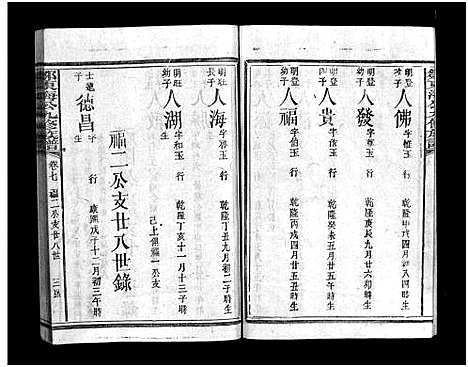 東海公九修族譜
明登子 人佛 字玉 行 乾隆甲戌月時生
明登子 人發 字玉 行 乾隆庚辰九月廿六卯時生
明登子 人貴 字玉 行 乾隆癸未五月廿五午時生
明登幼子 人福 字玉 行 乾隆丙戌四月廿五丑時生
明旺長子 人海 字玉 行 乾隆丁丑九月初二子時生
明旺幼子 人湖 字和玉 行 乾隆丁亥十一月十三子時生
己上朝福一公支
福二公支廿八世錄
士龍子 德昌 字 行 康熙戊子十二月初三午時生
東海公九修族譜 卷七 福二公支廿八世